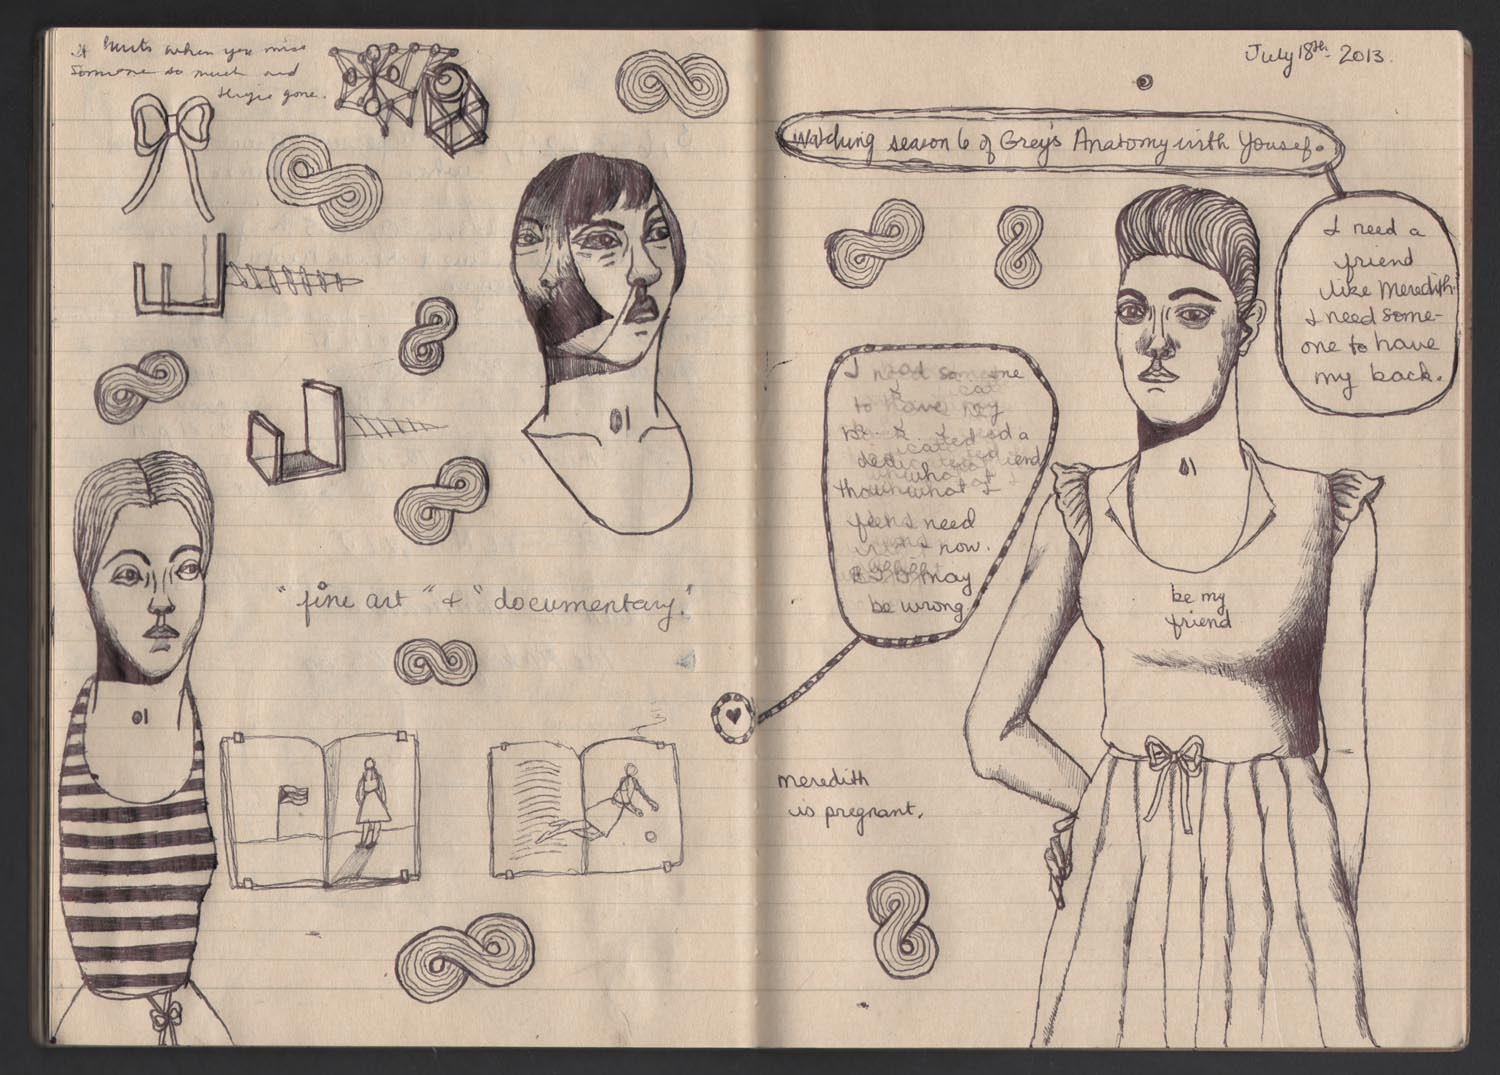 It hurts when you miss
someone so much and
they're gone.
"fine art" + "documentary."
July 18th 2013.
Watching season 6 of Grey's Anatomy with Yousef.
I need a
friend
like Meredith.
I need some-
one to have
my back.
I need someone
to have my
need a
dedicated friend
what I
need
now.
may
be wrong
be my
friend
meredith
is pregnant.